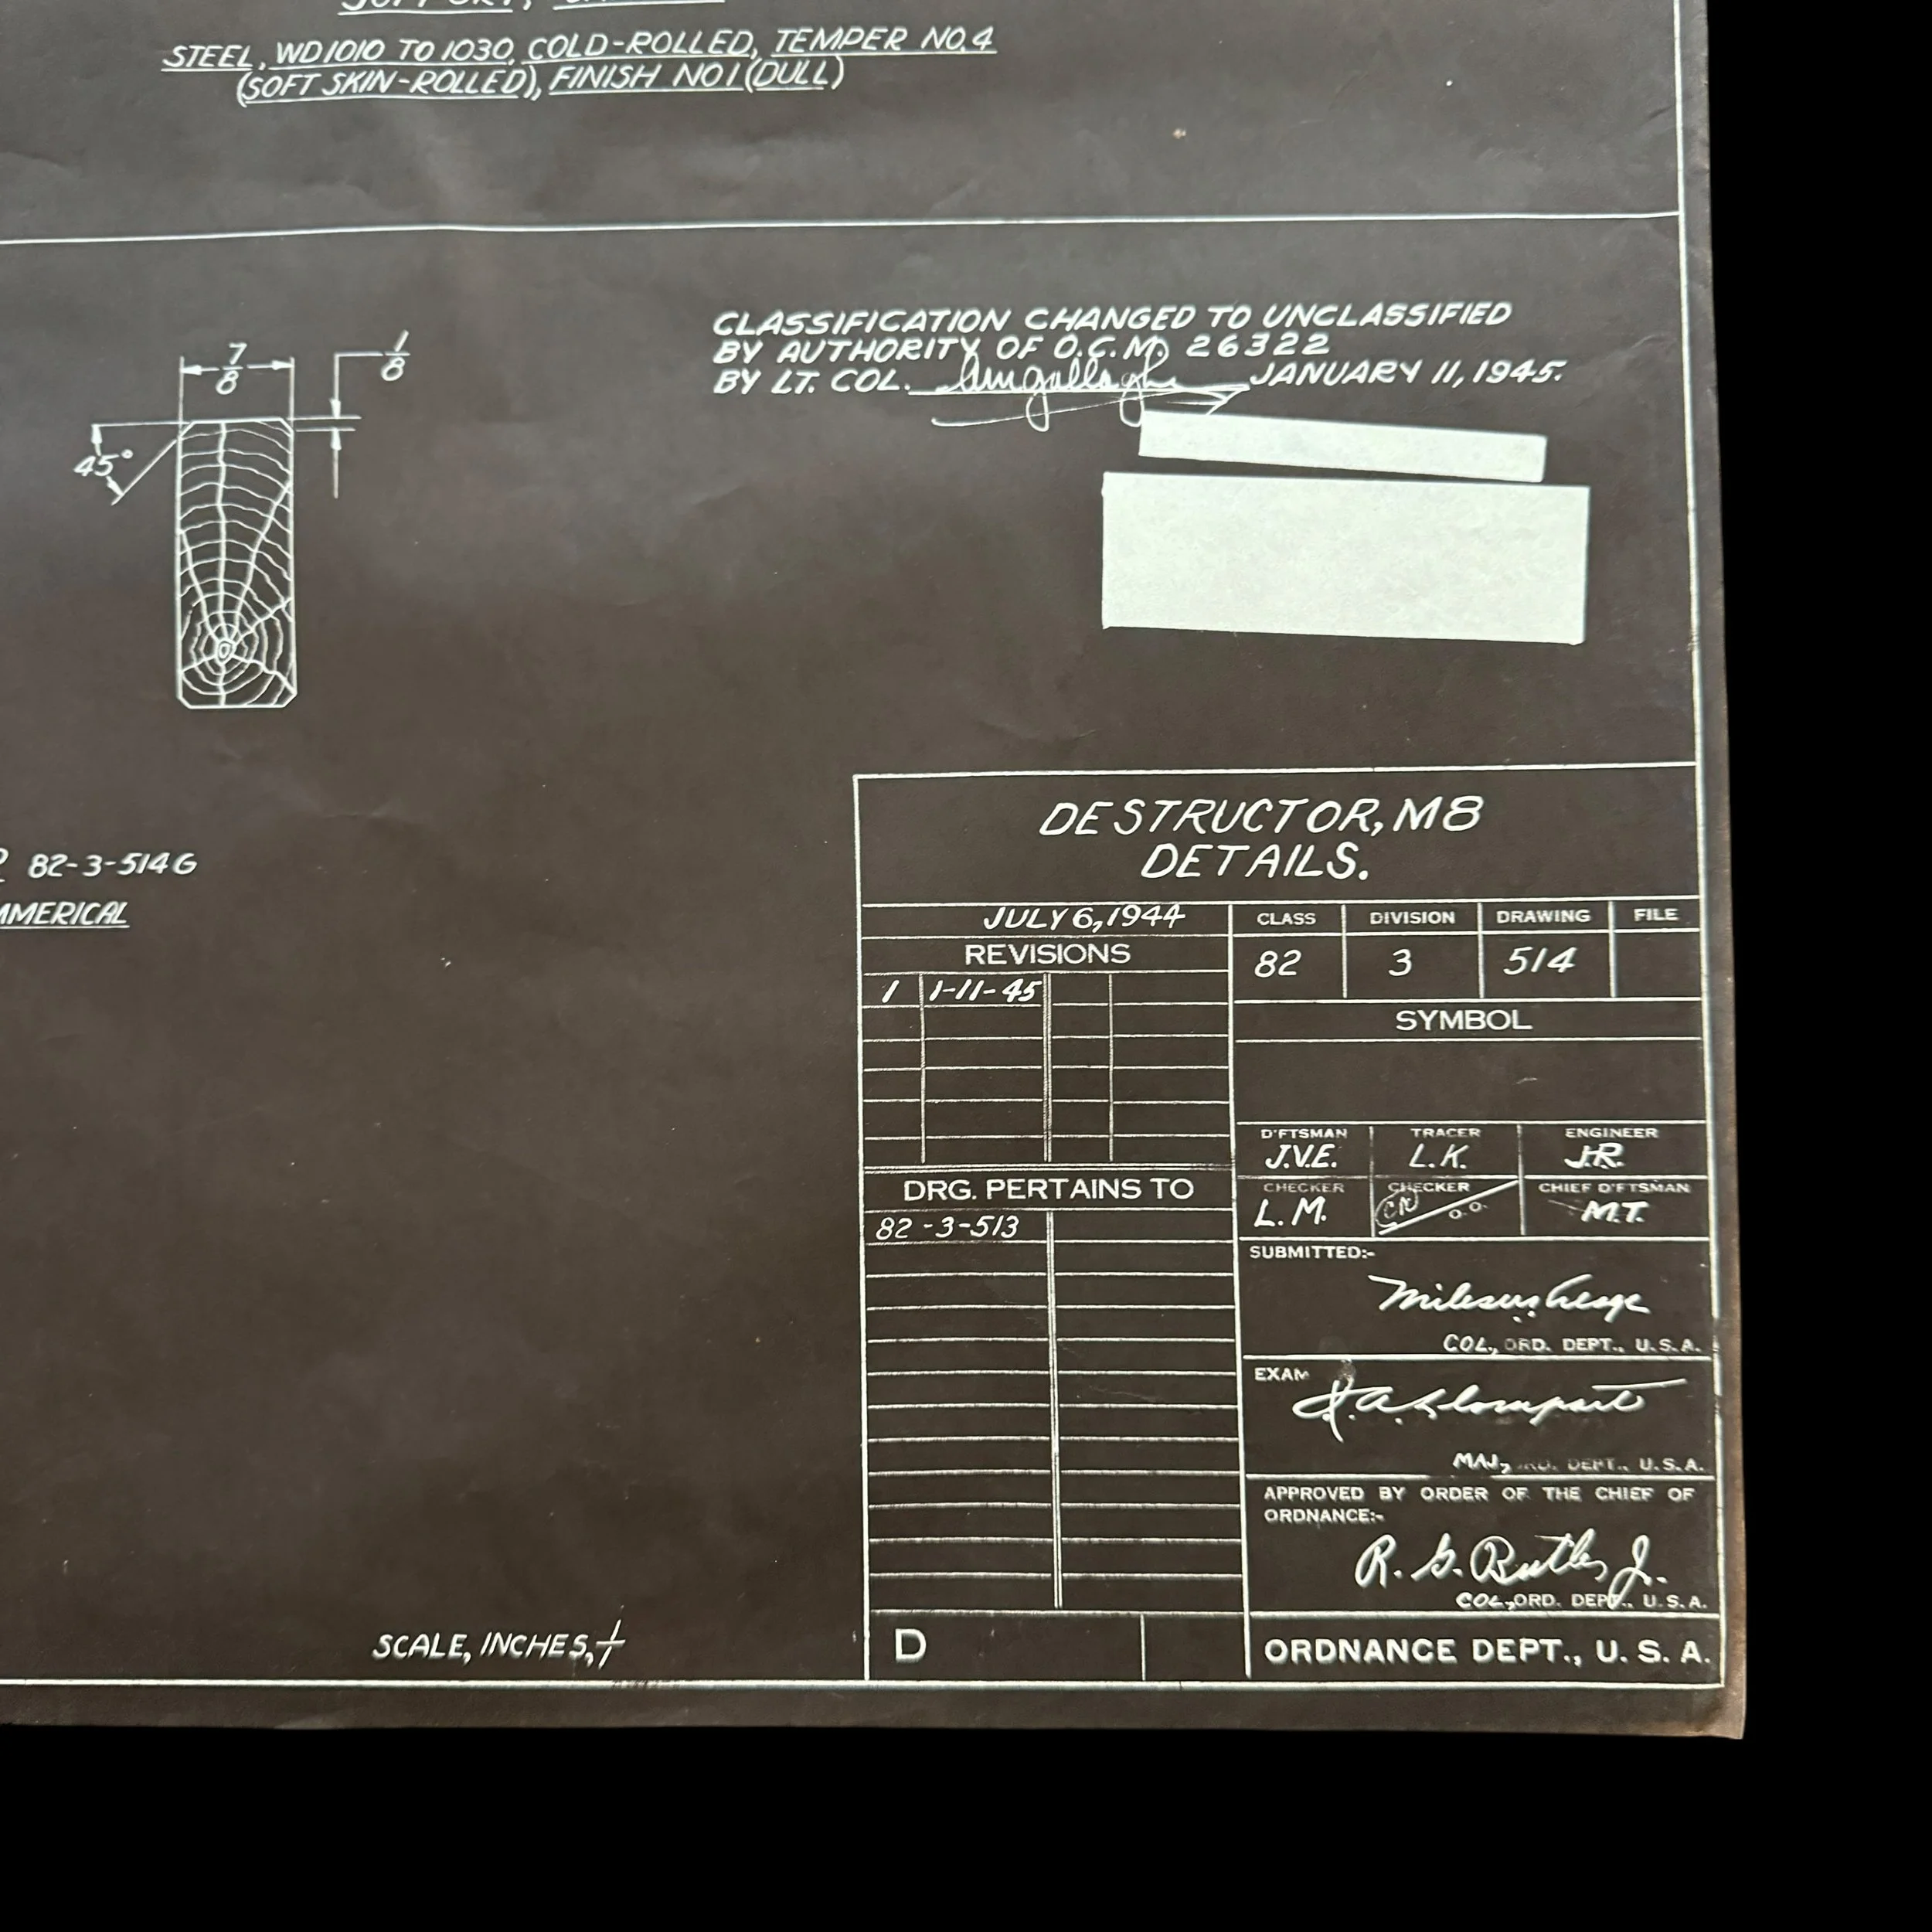 STEEL, WD1010 TO 1030, COLD-ROLLED, TEMPER NO.4
(SOFT SKIN-ROLLED), FINISH NO1(DULL)
CLASSIFICATION CHANGED TO UNCLASSIFIED
BY AUTHORITY OF O.C.M. 26322
BY LT. COL. JANUARY 11, 1945.
7/8
1/8
45°
82-3-514G
DESTRUCTOR, M8
DETAILS.
JULY 6, 1944
REVISIONS
1 1-11-45
CLASS DIVISION DRAWING FILE
82 3 514
SYMBOL
D'FTSMAN TRACER ENGINEER
J.V.E. L.K. J.R.
CHECKER CHECKER CHIEF D'FTSMAN
L.M. CN O.O. M.T.
DRG. PERTAINS TO
82-3-513
SUBMITTED:-
COL., ORD. DEPT., U.S.A.
EXAM
MAJ., DEPT., U.S.A.
APPROVED BY ORDER OF THE CHIEF OF
ORDNANCE:-
R. G. Butler Jr.
COL., ORD. DEPT., U.S.A.
SCALE, INCHES, 1/1
D
ORDNANCE DEPT., U. S. A.